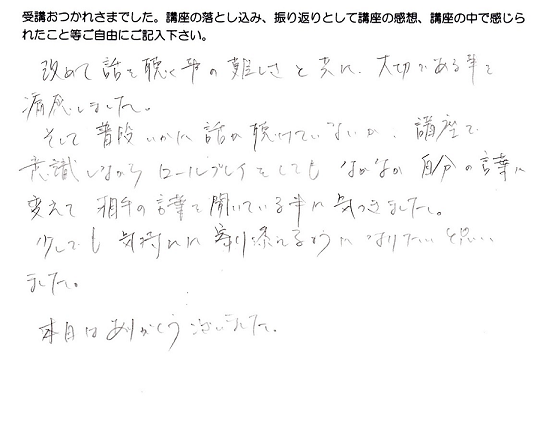 受講おつかれさまでした。講座の落とし込み、振り返りとして講座の感想、講座の中で感じら
れたこと等ご自由にご記入下さい。
改めて話を聴く事の難しさと共に、大切である事を
痛感しました。
そして普段いかに話が聴けていないか、講座で
意識しながらロールプレイをしてもなかなか自分の言葉に
変えて相手の言葉を聞いている事に気づきました。
少しでも気持ちに寄り添えるようになりたいと思い
ました。
本日はありがとうございました。